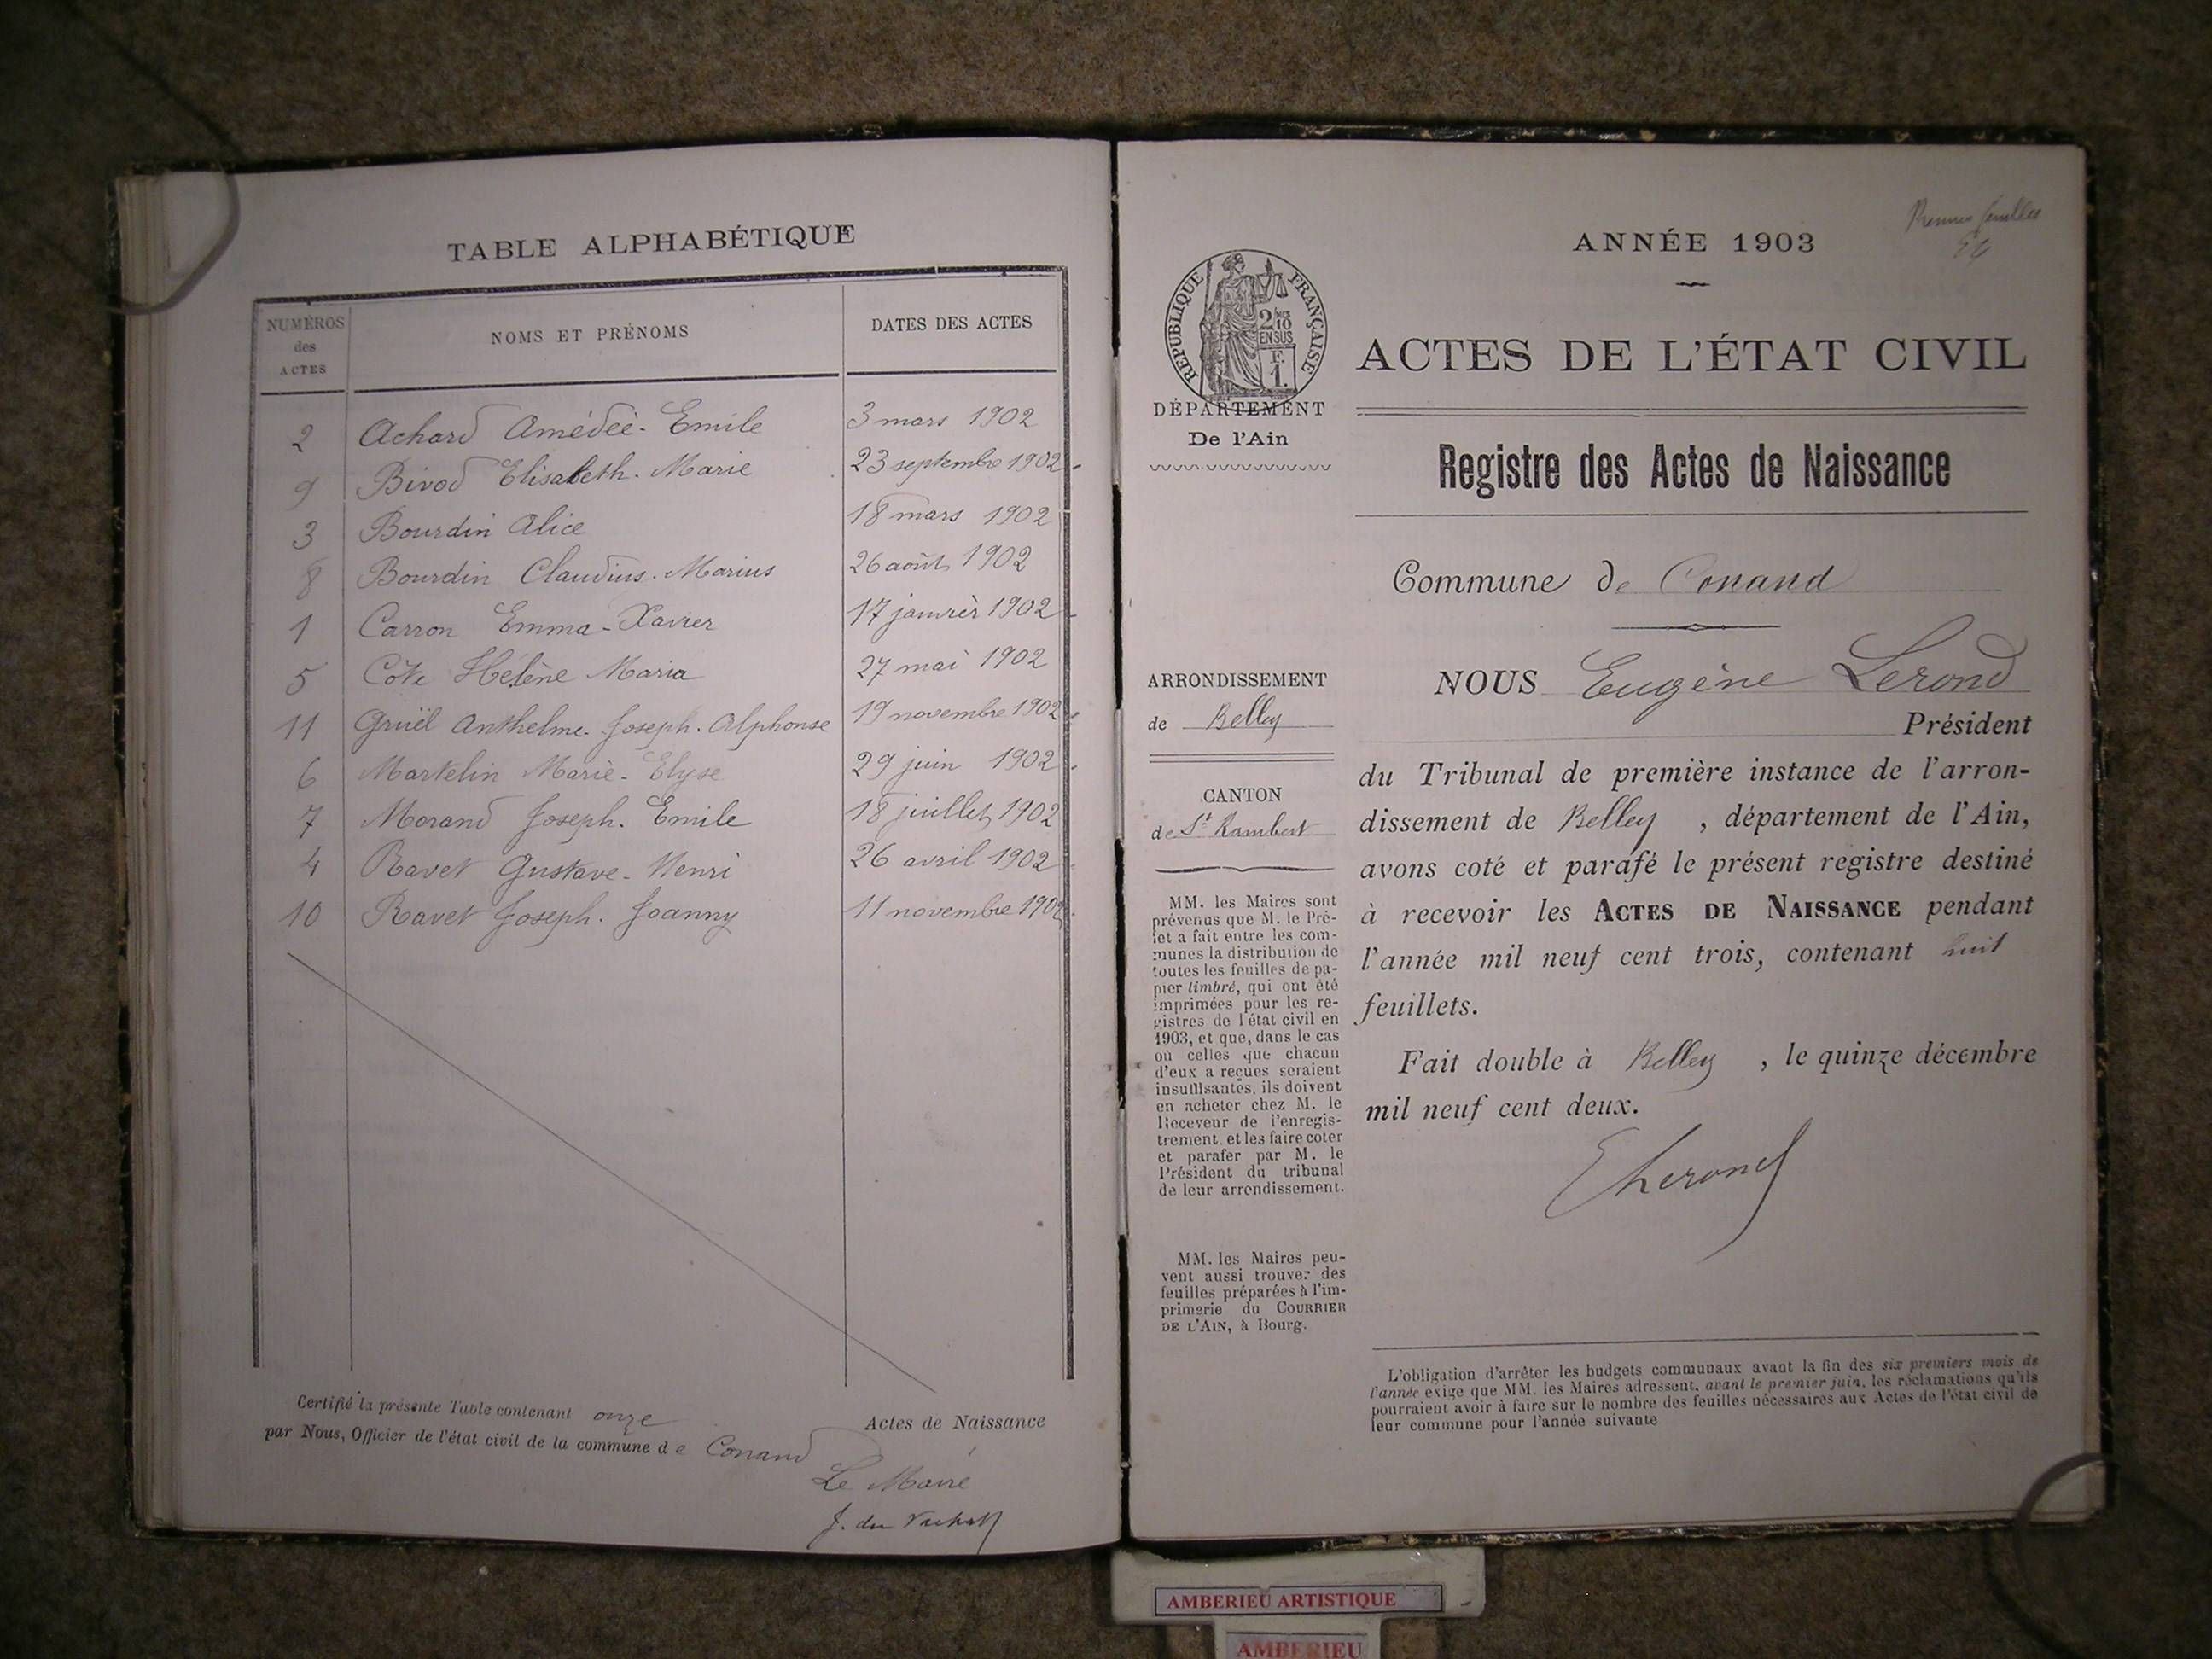 TABLE ALPHABÉTIQUE
NUMÉROS des ACTES NOMS ET PRÉNOMS DATES DES ACTES
2 Achard Amédée-Emile 3 mars 1902
9 Bivod Elisabeth-Marie 23 septembre 1902
3 Bourdin Alice 18 mars 1902
8 Bourdin Claudius-Marius 26 août 1902
1 Carron Emma-Xavier 17 janvier 1902
5 Côte Hélène Maria 27 mai 1902
11 Gruël Anthelme-Joseph-Alphonse 19 novembre 1902
6 Martelin Marie-Elyse 29 juin 1902
7 Morand Joseph-Emile 18 juillet 1902
4 Ravet Gustave-Henri 26 avril 1902
10 Ravet Joseph-Joanny 11 novembre 1902
Certifié la présente Table contenant onze Actes de Naissance
par Nous, Officier de l'état civil de la commune de Conand
Le Maire
ANNÉE 1903
RÉPUBLIQUE FRANÇAISE
2/10
EN SUS
F.
1.
ACTES DE L'ÉTAT CIVIL
DÉPARTEMENT
De l'Ain
Registre des Actes de Naissance
Commune de Conand
ARRONDISSEMENT
de Belley
CANTON
de St Rambert
MM. les Maires sont
prévenus que M. le Pré-
fet a fait entre les com-
munes la distribution de
toutes les feuilles de pa-
pier timbré, qui ont été
imprimées pour les re-
gistres de l'état civil en
1903, et que, dans le cas
où celles que chacun
d'eux a reçues seraient
insuffisantes, ils doivent
en acheter chez M. le
Receveur de l'enregis-
trement, et les faire coter
et parafer par M. le
Président du tribunal
de leur arrondissement.
MM. les Maires peu-
vent aussi trouver des
feuilles préparées à l'im-
primerie du COURRIER
DE L'AIN, à Bourg.
NOUS Eugène Lerond
Président
du Tribunal de première instance de l'arron-
dissement de Belley , département de l'Ain,
avons coté et parafé le présent registre destiné
à recevoir les ACTES DE NAISSANCE pendant
l'année mil neuf cent trois, contenant huit
feuillets.
Fait double à Belley , le quinze décembre
mil neuf cent deux.
ELerond
L'obligation d'arrêter les budgets communaux avant la fin des six premiers mois de
l'année exige que MM. les Maires adressent, avant le premier juin, les réclamations qu'ils
pourraient avoir à faire sur le nombre des feuilles nécessaires aux Actes de l'état civil de
leur commune pour l'année suivante
AMBERIEU ARTISTIQUE
AMBERIEU